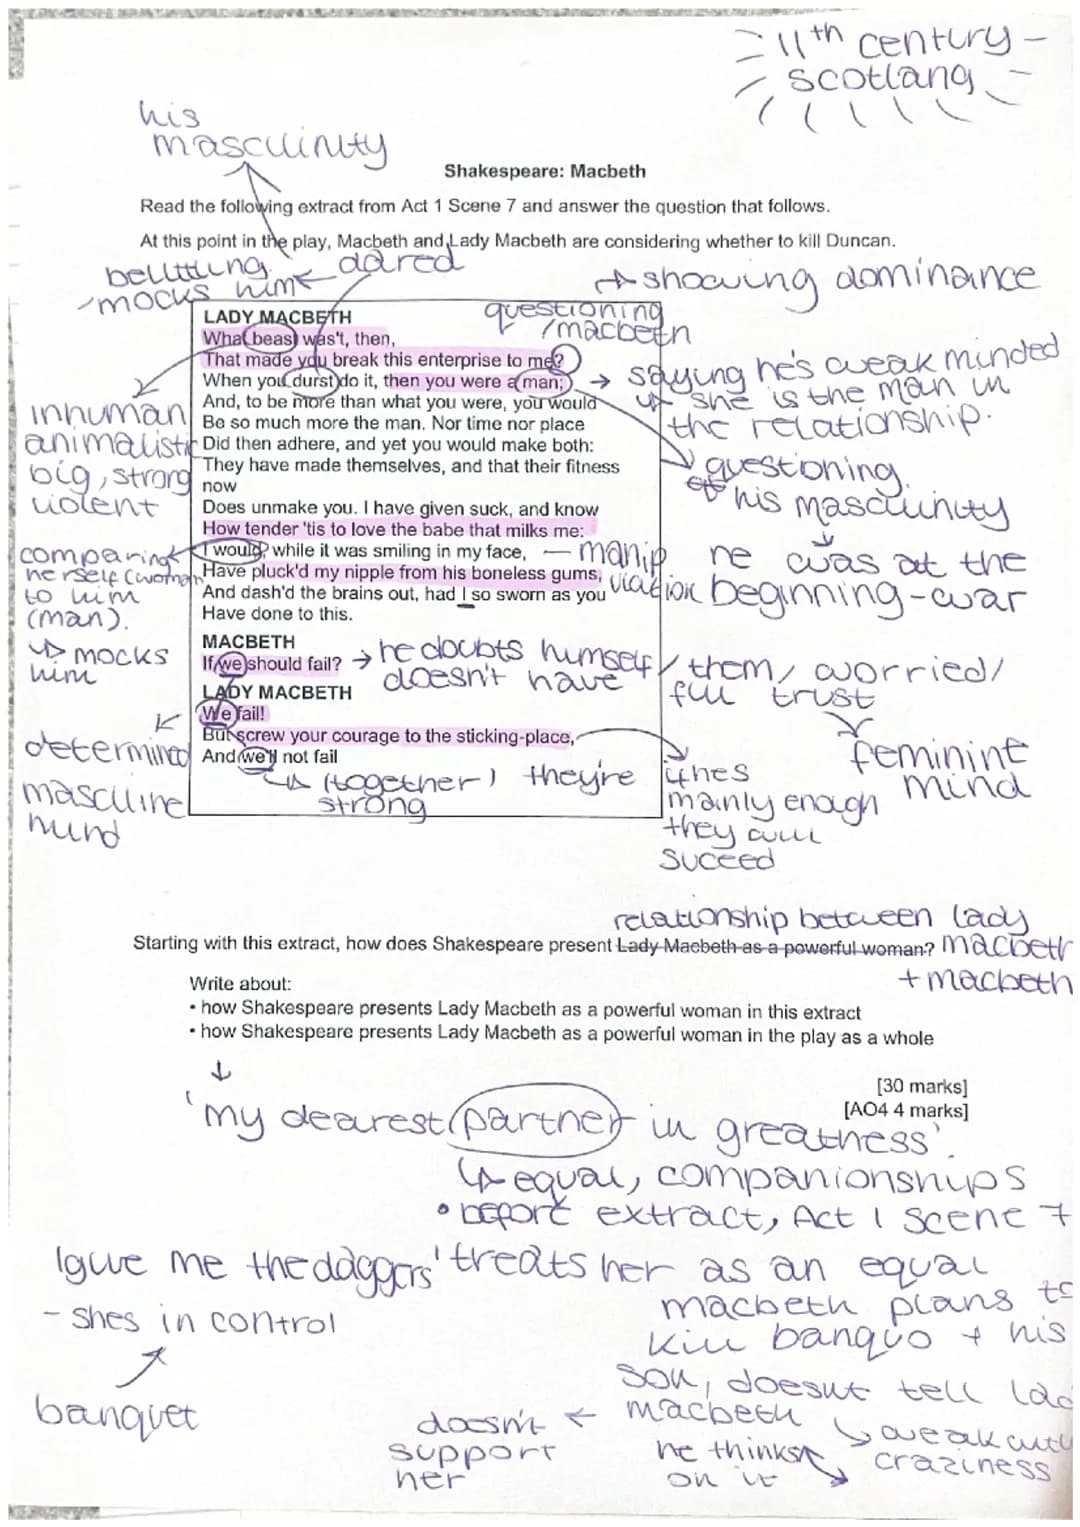 11th century
scotland
his
masculinity
Shakespeare: Macbeth
Read the following extract from Act 1 Scene 7 and answer the question that follows.
At this point in the play, Macbeth and Lady Macbeth are considering whether to kill Duncan.
belittling
mocks him
dared
showing dominance
questioning
/macbeth
LADY MACBETH
What beast was't, then,
That made you break this enterprise to me?
When you durst do it, then you were a man;
And, to be more than what you were, you would
Be so much more the man. Nor time nor place
Did then adhere, and yet you would make both:
They have made themselves, and that their fitness
now
Does unmake you. I have given suck, and know
How tender 'tis to love the babe that milks me:
I would, while it was smiling in my face,
Have pluck'd my nipple from his boneless gums,
And dash'd the brains out, had I so sworn as you
Have done to this.
MACBETH
If we should fail?
LADY MACBETH
We fail!
But screw your courage to the sticking-place,
And we'll not fail
saying he's weak minded
she is the man in
the relationship.
inhuman
animalistic
big, strong
violent
questioning
his masculinity
he was at the
beginning-war
comparing
herself (woman
to him
(man).
mocks
him
manip
ulation
he doubts himself / them / worried/
doesn't have full trust
feminint
mind
determined
masculine
mind
(together) they're
strong
if hes
mainly enough
they will
suceed
relationship between lady
macbeth
+ macbeth
Starting with this extract, how does Shakespeare present Lady Macbeth as a powerful woman?
Write about:
• how Shakespeare presents Lady Macbeth as a powerful woman in this extract
• how Shakespeare presents Lady Macbeth as a powerful woman in the play as a whole
[30 marks]
[AO4 4 marks]
'my dearest partner in greatness'.
equal, companionships
• before extract, Act 1 Scene 7
'give me the daggers'
- shes in control
banquet
treats her as an equal
macbeth plans to
kill banquo + his
son, doesnt tell lad
macbeth
doesn't
support
her
he thinks
on it
weak
craziness